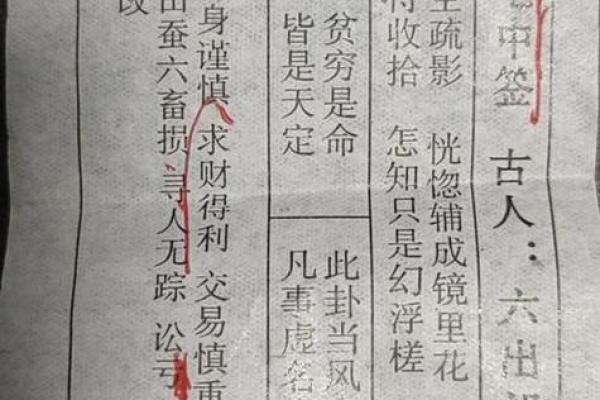 中签 古人：六出
疏影 恍惚辅成镜里花
收拾 怎知只是幻浮槎
贫穷是命
皆是天定
此卦当风
凡事虚名
身谨慎 求财得利 交易慎重
田蚕六畜损 寻人无踪 讼亏
改